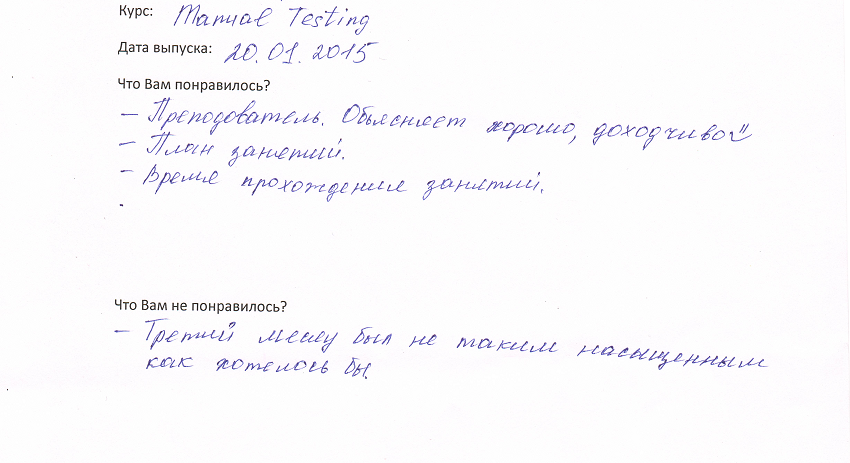 Курс: Manual Testing
Дата выпуска: 20.01.2015
Что Вам понравилось?
– Преподователь. Объясняет хорошо, доходчиво!!
– План занятий.
– Время прохождения занятий.
Что Вам не понравилось?
– Третий месяц был не таким насыщенным
как хотелось бы.